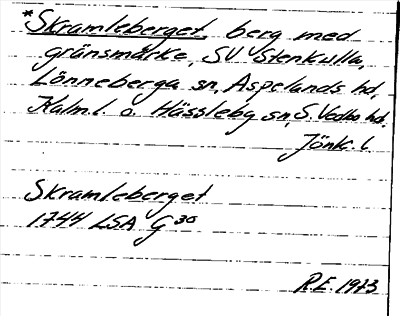 *Skramleberget, berg med
gränsmärke, SV Stenkulla,
Lönneberga sn, Aspelands hd,
Kalm.l. o. Hässleby sn, S. Vedbo hd.
Jönk. l.
Skramleberget
1744 LSA G 30
R.E. 1973